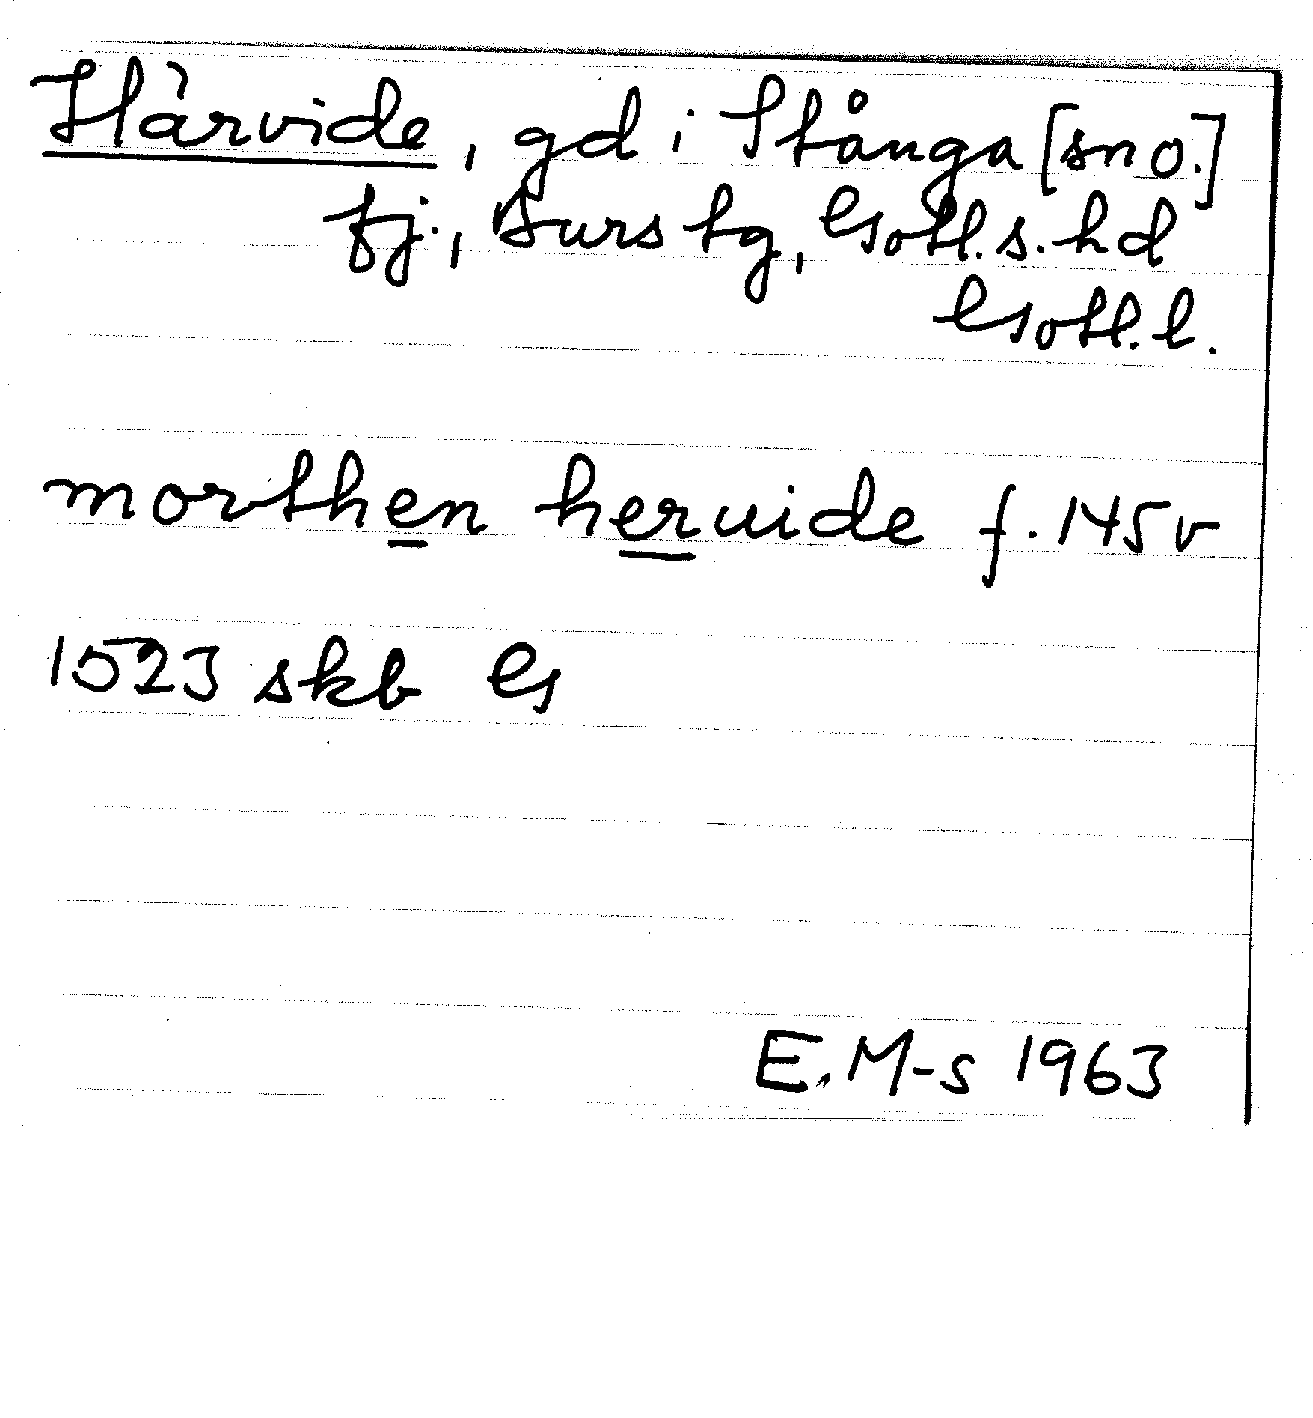 Härvide, gd i Stånga [sn o.]
fj., Burs tg, Gotl. s. hd
Gotl. l.
morthen heruide f. 145v
1523 skb G
E. M-s 1963